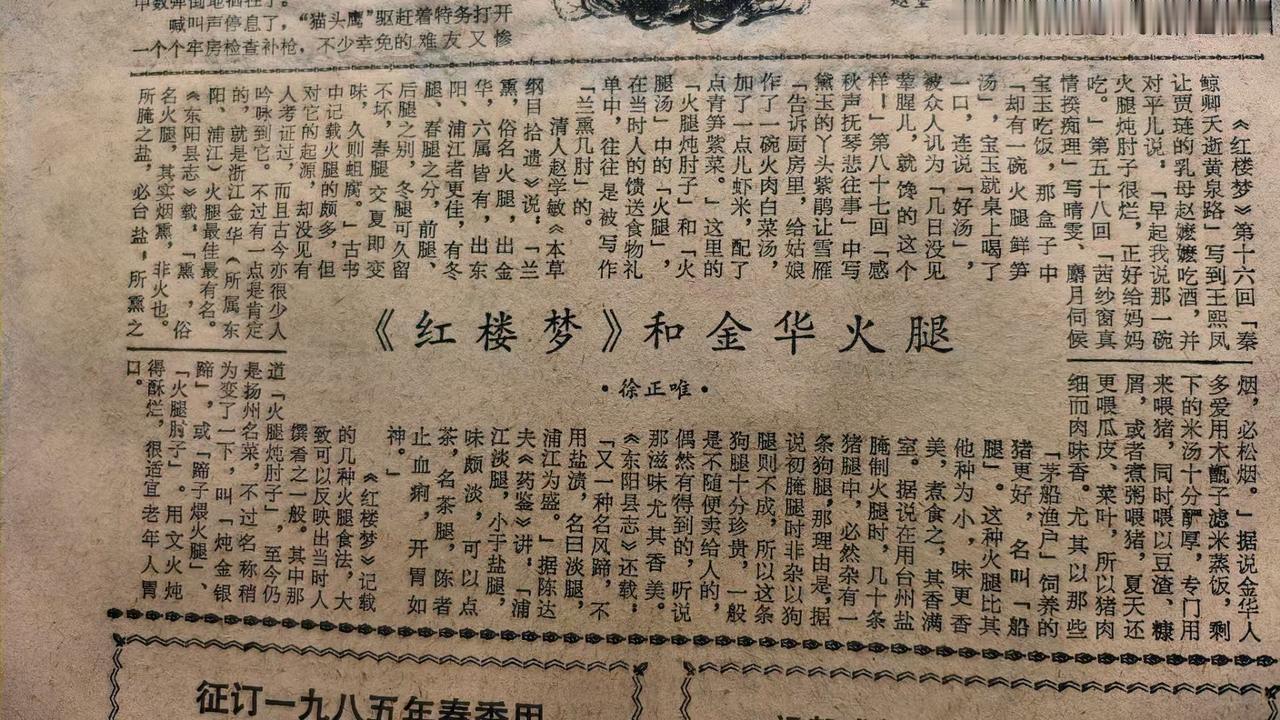 中数弹倒地牺牲了。
喊叫声停息了，“猫头鹰”驱赶着特务打开
一个个牢房检查补枪，不少幸免的难友又惨
《红楼梦》和金华火腿
·徐正唯·
《红楼梦》第十六回「秦
鲸卿夭逝黄泉路」写到王熙凤
让贾琏的乳母赵嬷嬷吃酒，并
对平儿说，「早起我说那一碗
火腿炖肘子很烂，正好给妈妈
吃。」第五十八回「茜纱窗真
情揆痴理」写晴雯、麝月伺候
宝玉吃饭，那盒子中
「却有一碗火腿鲜笋
汤」，宝玉就桌上喝了
一口，连说「好汤」，
被众人讥为「几日没见
荤腥儿，就馋的这个
样！」第八十七回「感
秋声抚琴悲往事」中写
黛玉的丫头紫鹃让雪雁
「告诉厨房里，给姑娘
作了一碗火肉白菜汤，
加了一点儿虾米，配了
点青笋紫菜。」这里的
「火腿炖肘子」和「火
腿汤」中的「火腿」，
在当时人的馈送食物礼
单中，往往是被写作
「兰熏几肘」的。
清人赵学敏《本草
纲目拾遗》说：「兰
熏，俗名火腿，出金
华，六属皆有，出东
阳、浦江者更佳，有冬
腿、春腿之分，前腿、
后腿之别，冬腿可久留
不坏，春腿交夏即变
味，久则蛆腐。」古书
中记载火腿的颇多，但
对它的起源，却没见有
人考证过，而且古今亦很少人
吟咏到它。不过有一点是肯定
的，就是浙江金华（所属东
阳、浦江）火腿最佳最有名。
《东阳县志》载，「熏，俗
名火腿，其实烟熏，非火也。
所腌之盐，必台盐，所熏之
烟，必松烟。」据说金华人
多爱用木甑子滤米蒸饭，剩
下的米汤十分酽厚，专门用
来喂猪，同时喂以豆渣、糠
屑，或者煮粥喂猪，夏天还
更喂瓜皮、菜叶，所以猪肉
细而肉味香。尤其以那些
「茅船渔户」饲养的
猪更好，名叫「船
腿」。这种火腿比其
他种为小，味更香
美，煮食之，其香满
室。据说在用台州盐
腌制火腿时，几十条
猪腿中，必然杂有一
条狗腿，那理由是，据
说初腌腿时非杂以狗
腿则不成，所以这条
狗腿十分珍贵，一般
是不随便卖给人的，
偶然有得到的，听说
那滋味尤其香美。
《东阳县志》还载：
「又一种名风蹄，不
用盐渍，名曰淡腿，
浦江为盛。」据陈达
夫《药鉴》讲，「浦
江淡腿，小于盐腿，
味颇淡，可以点
茶，名茶腿，陈者
止血痢，开胃如
神。」
《红楼梦》记载
的几种火腿食法，大
致可以反映出当时人
馔肴之一般。其中那
道「火腿炖肘子」，至今仍
是扬州名菜，不过名称稍
为变了一下，叫「炖金银
蹄」，或「蹄子煨火腿」、
「火腿肘子」。用文火炖
得酥烂，很适宜老年人胃
口。
征订一九八五年春季用